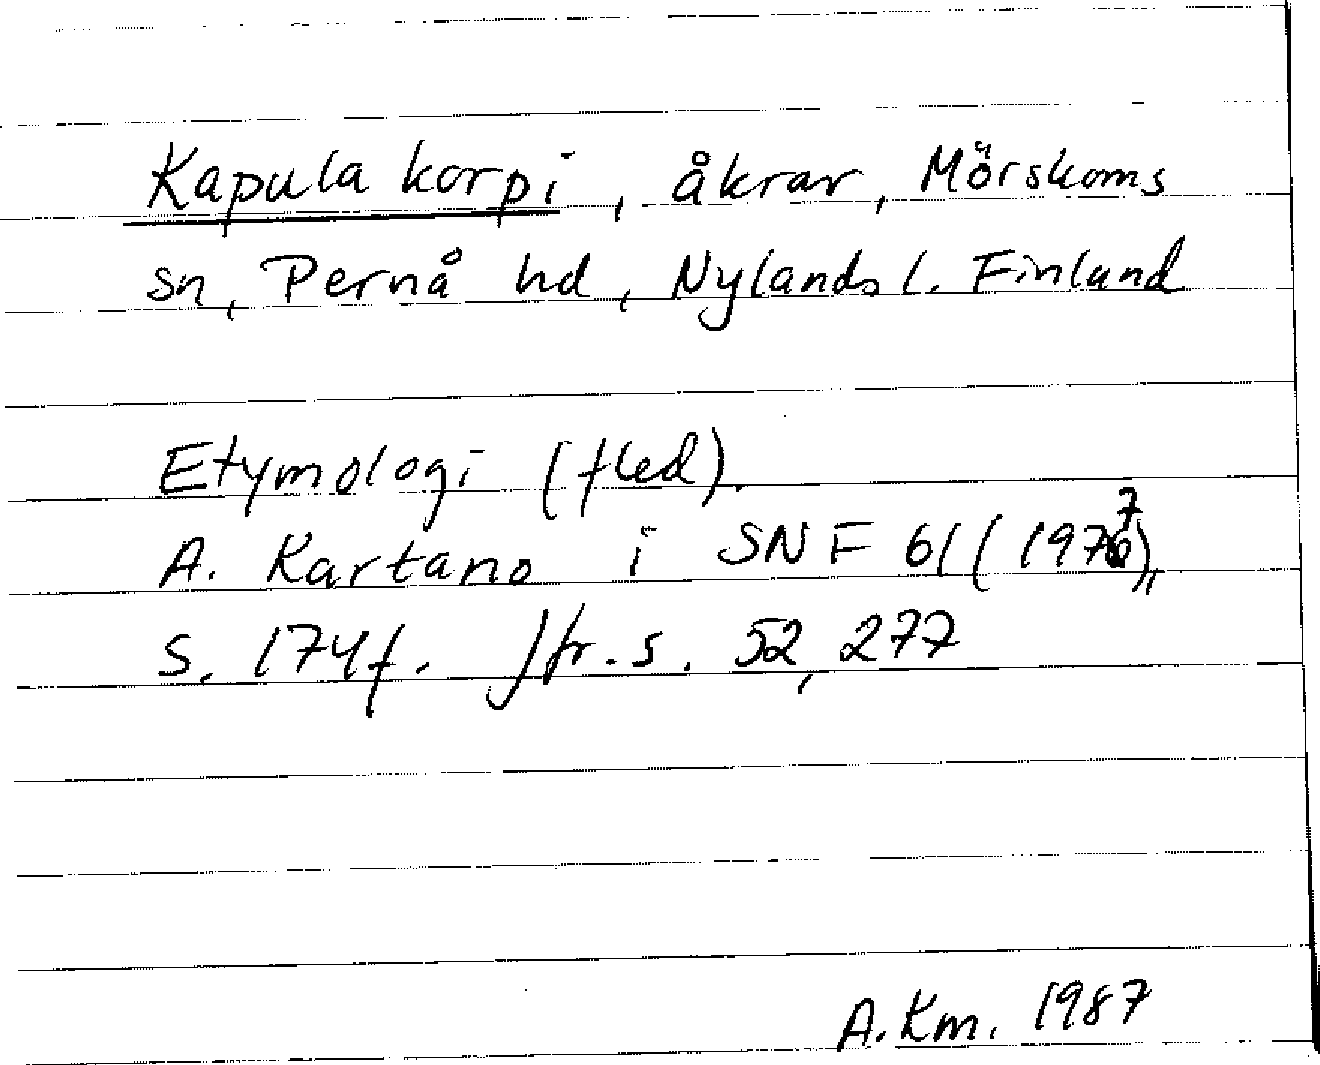 Kapula korpi, åkrar, Mörskoms
sn, Pernå hd, Nylands l. Finland
Etymologi (fled).
A. Kartano i SNF 61 (1977),
s. 174f. Jfr. s. 52, 277
A. Km. 1987